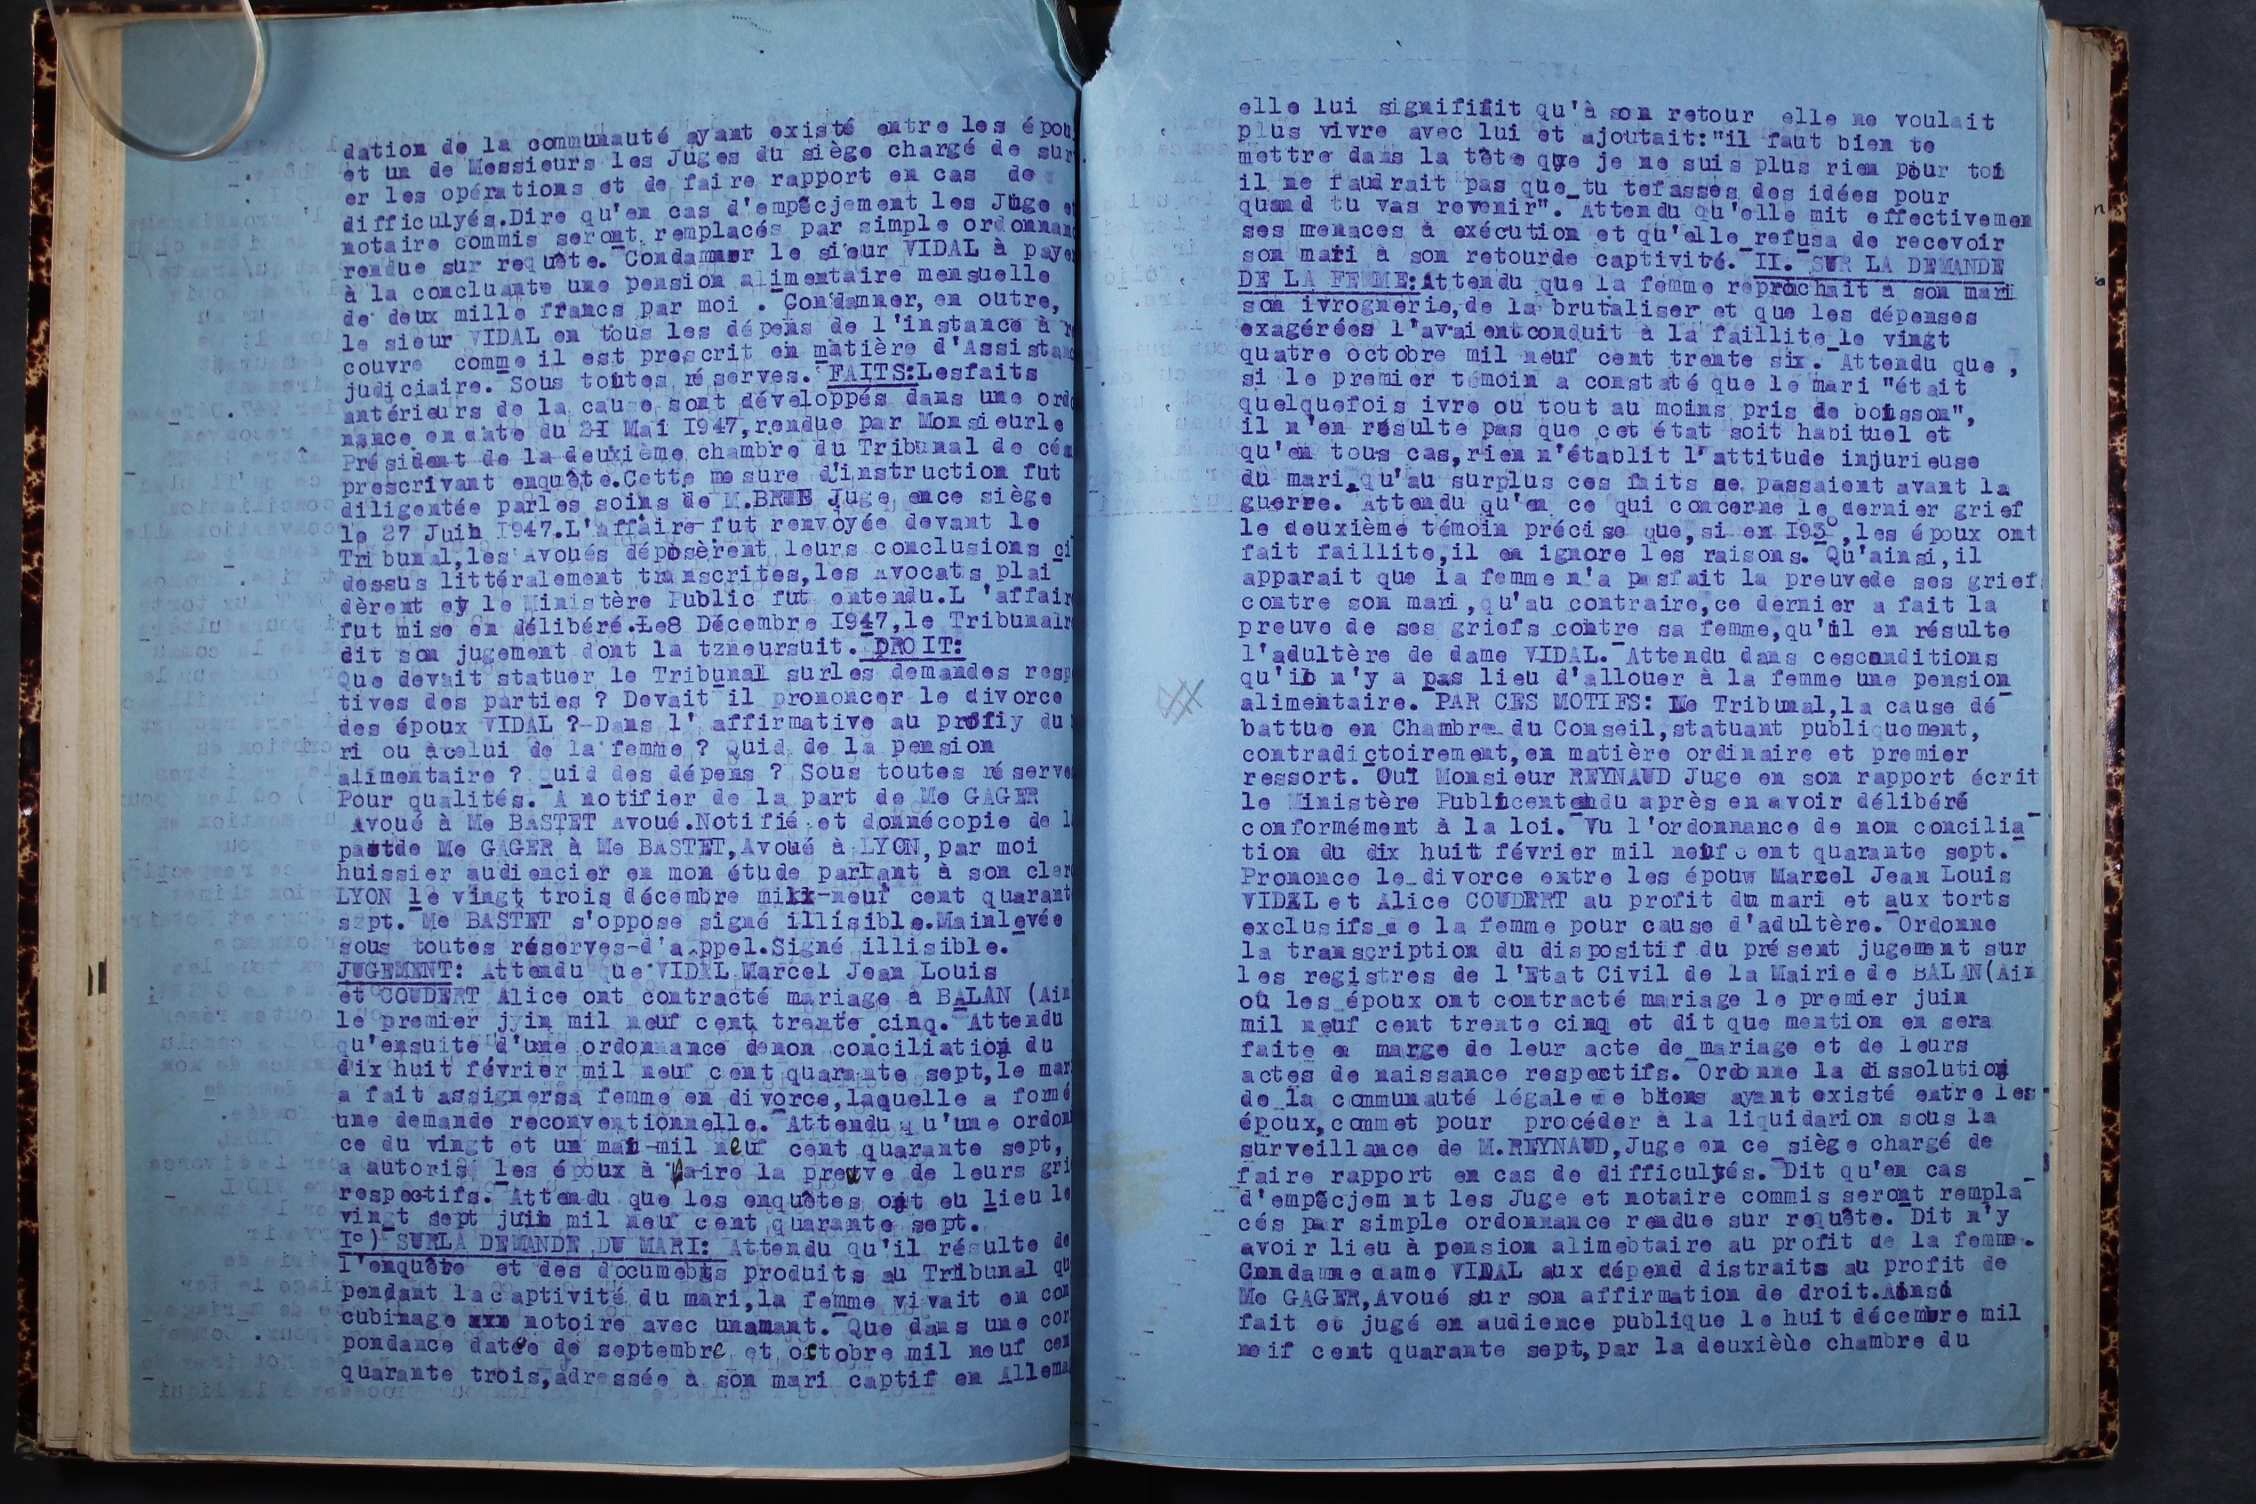 dation de la communauté ayant existé entre les épou
et un de Messieurs les Juges du siège chargé de sur
er les opérations et de faire rapport en cas de
difficulyés.Dire qu'en cas d'empêcjement les Juge et
notaire commis seront remplacés par simple ordonnanc
rendue sur requête. Condammer le sieur VIDAL à payer
à la concluante une pension alimentaire mensuelle
de deux mille francs par moi . Condanner, en outre,
le sieur VIDAL en tous les dépens de l'instance à re
couvre comme il est prescrit en matière d'Assistanc
judiciaire. Sous toutes ré serves. FAITS:Lesfaits
antérieurs de la cause sont développés dans une ordo
nance en date du 21 Mai I947,rendue par Monsieurle
Président de la deuxième chambre du Tribunal de céan
prescrivant enquête.Cette me sure d'instruction fut
diligentée parles soins de M.BRUE Juge ence siège
le 27 Juin I947.L'affaire fut renvoyée devant le
Tribunal,les Avoués déposèrent leurs conclusions ci
dessus littéralement transcrites,les Avocats plai
dèrent et le Ministère Public fut entendu.L 'affaire
fut mise en délibéré.Le8 Décembre I947,le Tribunair
dit son jugement dont la tzneursuit. DROIT:
Que devait statuer le Tribunal surles demandes resp
tives des parties ? Devait il prononcer le divorce
des époux VIDAL ?-Dans l' affirmative au profiy du
ri ou àcelui de la femme ? Quid de la pension
alimentaire ? Quid des dépens ? Sous toutes ré serve
Pour qualités. A notifier de la part de Me GAGER
Avoué à Me BASTET Avoué.Notifié et donnécopie de l
partde Me GAGER à Me BASTET,Avoué à LYON,par moi
huissier audiencier en mon étude parlant à son cler
LYON le vingt trois décembre mil-neuf cent quarant
szpt. Me BASTET s'oppose signé illisible.Mainlevée
sous toutes réserves-d'a ppel.Signé illisible.
JUGEMENT: Attendu que VIDAL Marcel Jean Louis
et COUDERT Alice ont contracté mariage à BALAN (Ain
le premier jyin mil neuf cent trente cinq. Attendu
qu'ensuite d'une ordonnance denon conciliation du
dix huit février mil neuf cent quarante sept,le mar
a fait assignersa femme en divorce,laquelle a formé
une demande reconventionnelle. Attendu qu'une ordon
ce du vingt et un mai-mil neuf cent quarante sept,
a autorisé les époux à faire la preuve de leurs gri
respectifs. Attendu que les enquêtes ont eu lieu le
vingt sept juin mil neuf cent quarante sept.
I°) SURLA DEMANDE DU MARI: Attendu qu'il résulte de
l'enquête et des documebts produits au Tribunal qu
pendant lacaptivité du mari,la femme vivait en con
cubinage xxx notoire avec unamant. Que dans une cor
pondance datée de septembre et octobre mil neuf cen
quarante trois,adressée à son mari captif en Allema
elle lui signifiait qu'à son retour elle ne voulait
plus vivre avec lui et ajoutait:"il faut bien te
mettre dans la tête que je ne suis plus rien pour toi
il ne faudrait pas que tu tefasses des idées pour
quand tu vas revenir". Attendu qu'elle mit effectivemen
ses menaces à exécution et qu'elle refusa de recevoir
son mari à son retourde captivité. II. SUR LA DEMANDE
DE LA FEMME:Attendu que la femme reprochait à son mari
son ivrognerie,de la brutaliser et que les dépenses
exagérées l'avaientconduit à la faillite le vingt
quatre octobre mil neuf cent trente six. Attendu que ,
si le premier témoin a constaté que le mari "était
quelquefois ivre ou tout au moins pris de boisson",
il n'en résulte pas que cet état soit habituel et
qu'en tous cas,rien n'établit l'attitude injurieuse
du mari,qu'au surplus ces faits se passaient avant la
guerre. Attendu qu'en ce qui concerne le dernier grief
le deuxième témoin précise que,si en I93 ,les époux ont
fait faillite,il en ignore les raisons. Qu'ainsi,il
apparait que la femme n'a pasfait la preuvede ses grief
contre son mari,qu'au contraire,ce dernier a fait la
preuve de ses griefs contre sa femme,qu'il en résulte
l'adultère de dame VIDAL. Attendu dans cesconditions
qu'il n'y a pas lieu d'allouer à la femme une pension
alimentaire. PAR CES MOTIFS: Le Tribunal,la cause dé
battue en Chambre du Conseil,statuant publiquement,
contradictoirement,en matière ordinaire et premier
ressort. Ouï Monsieur REYNAUD Juge en son rapport écrit
le Ministère Publicentendu après en avoir délibéré
conformément à la loi. Vu l'ordonnance de non concilia
tion du dix huit février mil neuf cent quarante sept.
Prononce le divorce entre les épouw Marcel Jean Louis
VIDAL et Alice COUDERT au profit du mari et aux torts
exclusifs de la femme pour cause d'adultère. Ordonne
la transcription du dispositif du présent jugement sur
les registres de l'Etat Civil de la Mairie de BALAN(Ain
où les époux ont contracté mariage le premier juin
mil neuf cent trente cinq et dit que mention en sera
faite en marge de leur acte de mariage et de leurs
actes de naissance respectifs. Ordonne la dissolution
de la communauté légale de biens ayant existé entre les
époux,commet pour procéder à la liquidarion sous la
surveillance de M.REYNAUD,Juge en ce siège chargé de
faire rapport en cas de difficulyés. Dit qu'en cas
d'empêcjem nt les Juge et notaire commis seront rempla
cés par simple ordonnance rendue sur requête. Dit n'y
avoir lieu à pension alimebtaire au profit de la femme.
Condamne dame VIDAL aux dépend distraits au profit de
Me GAGER,Avoué sur son affirmation de droit.Ainsi
fait et jugé en audience publique le huit décembre mil
neif cent quarante sept,par la deuxièùe chambre du